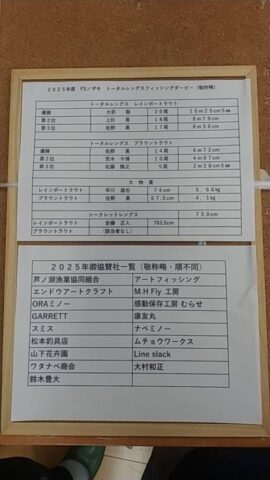 2025年度 FSノザキ トータルレングスフィッシングダービー(敬称略)
トータルレングス レインボートラウト
優勝 大釣 聡 20尾 10m25cm5㎜
第2位 上杉 真 19尾 8m79cm
第3位 佐野 勇 17尾 8m36cm
トータルレングス ブラウントラウト
優勝 佐野 勇 14尾 6m72cm
第2位 荒木 千博 10尾 4m57cm
第3位 佐藤 隆之 5尾 2m28cm5㎜
大物賞
レインボートラウト 早川 達也 74cm 5.66kg
ブラウントラウト 佐野 勇 67.5cm 4.1kg
シークレットレングス 750cm
レインボートラウト 安藤 正人 763.5cm
ブラウントラウト (該当者なし)
2025年御協賛社一覧(敬称略・順不同)
芦ノ湖漁業協同組合 アートフィッシング
エンドウアートクラフト M.H Fly 工房
ORAミノー 感動保存工房 むらせ
GARRETT 康友丸
スミス ナベミノー
松本釣具店 ムチョウワークス
山下花卉園 Line slack
ワタナベ商会 大村和正
鈴木豊大